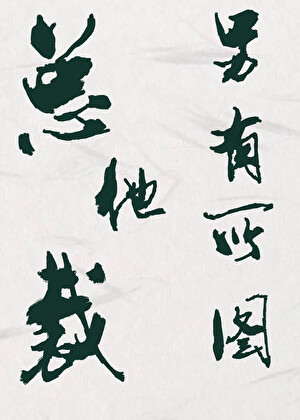 总裁
他
另有所图